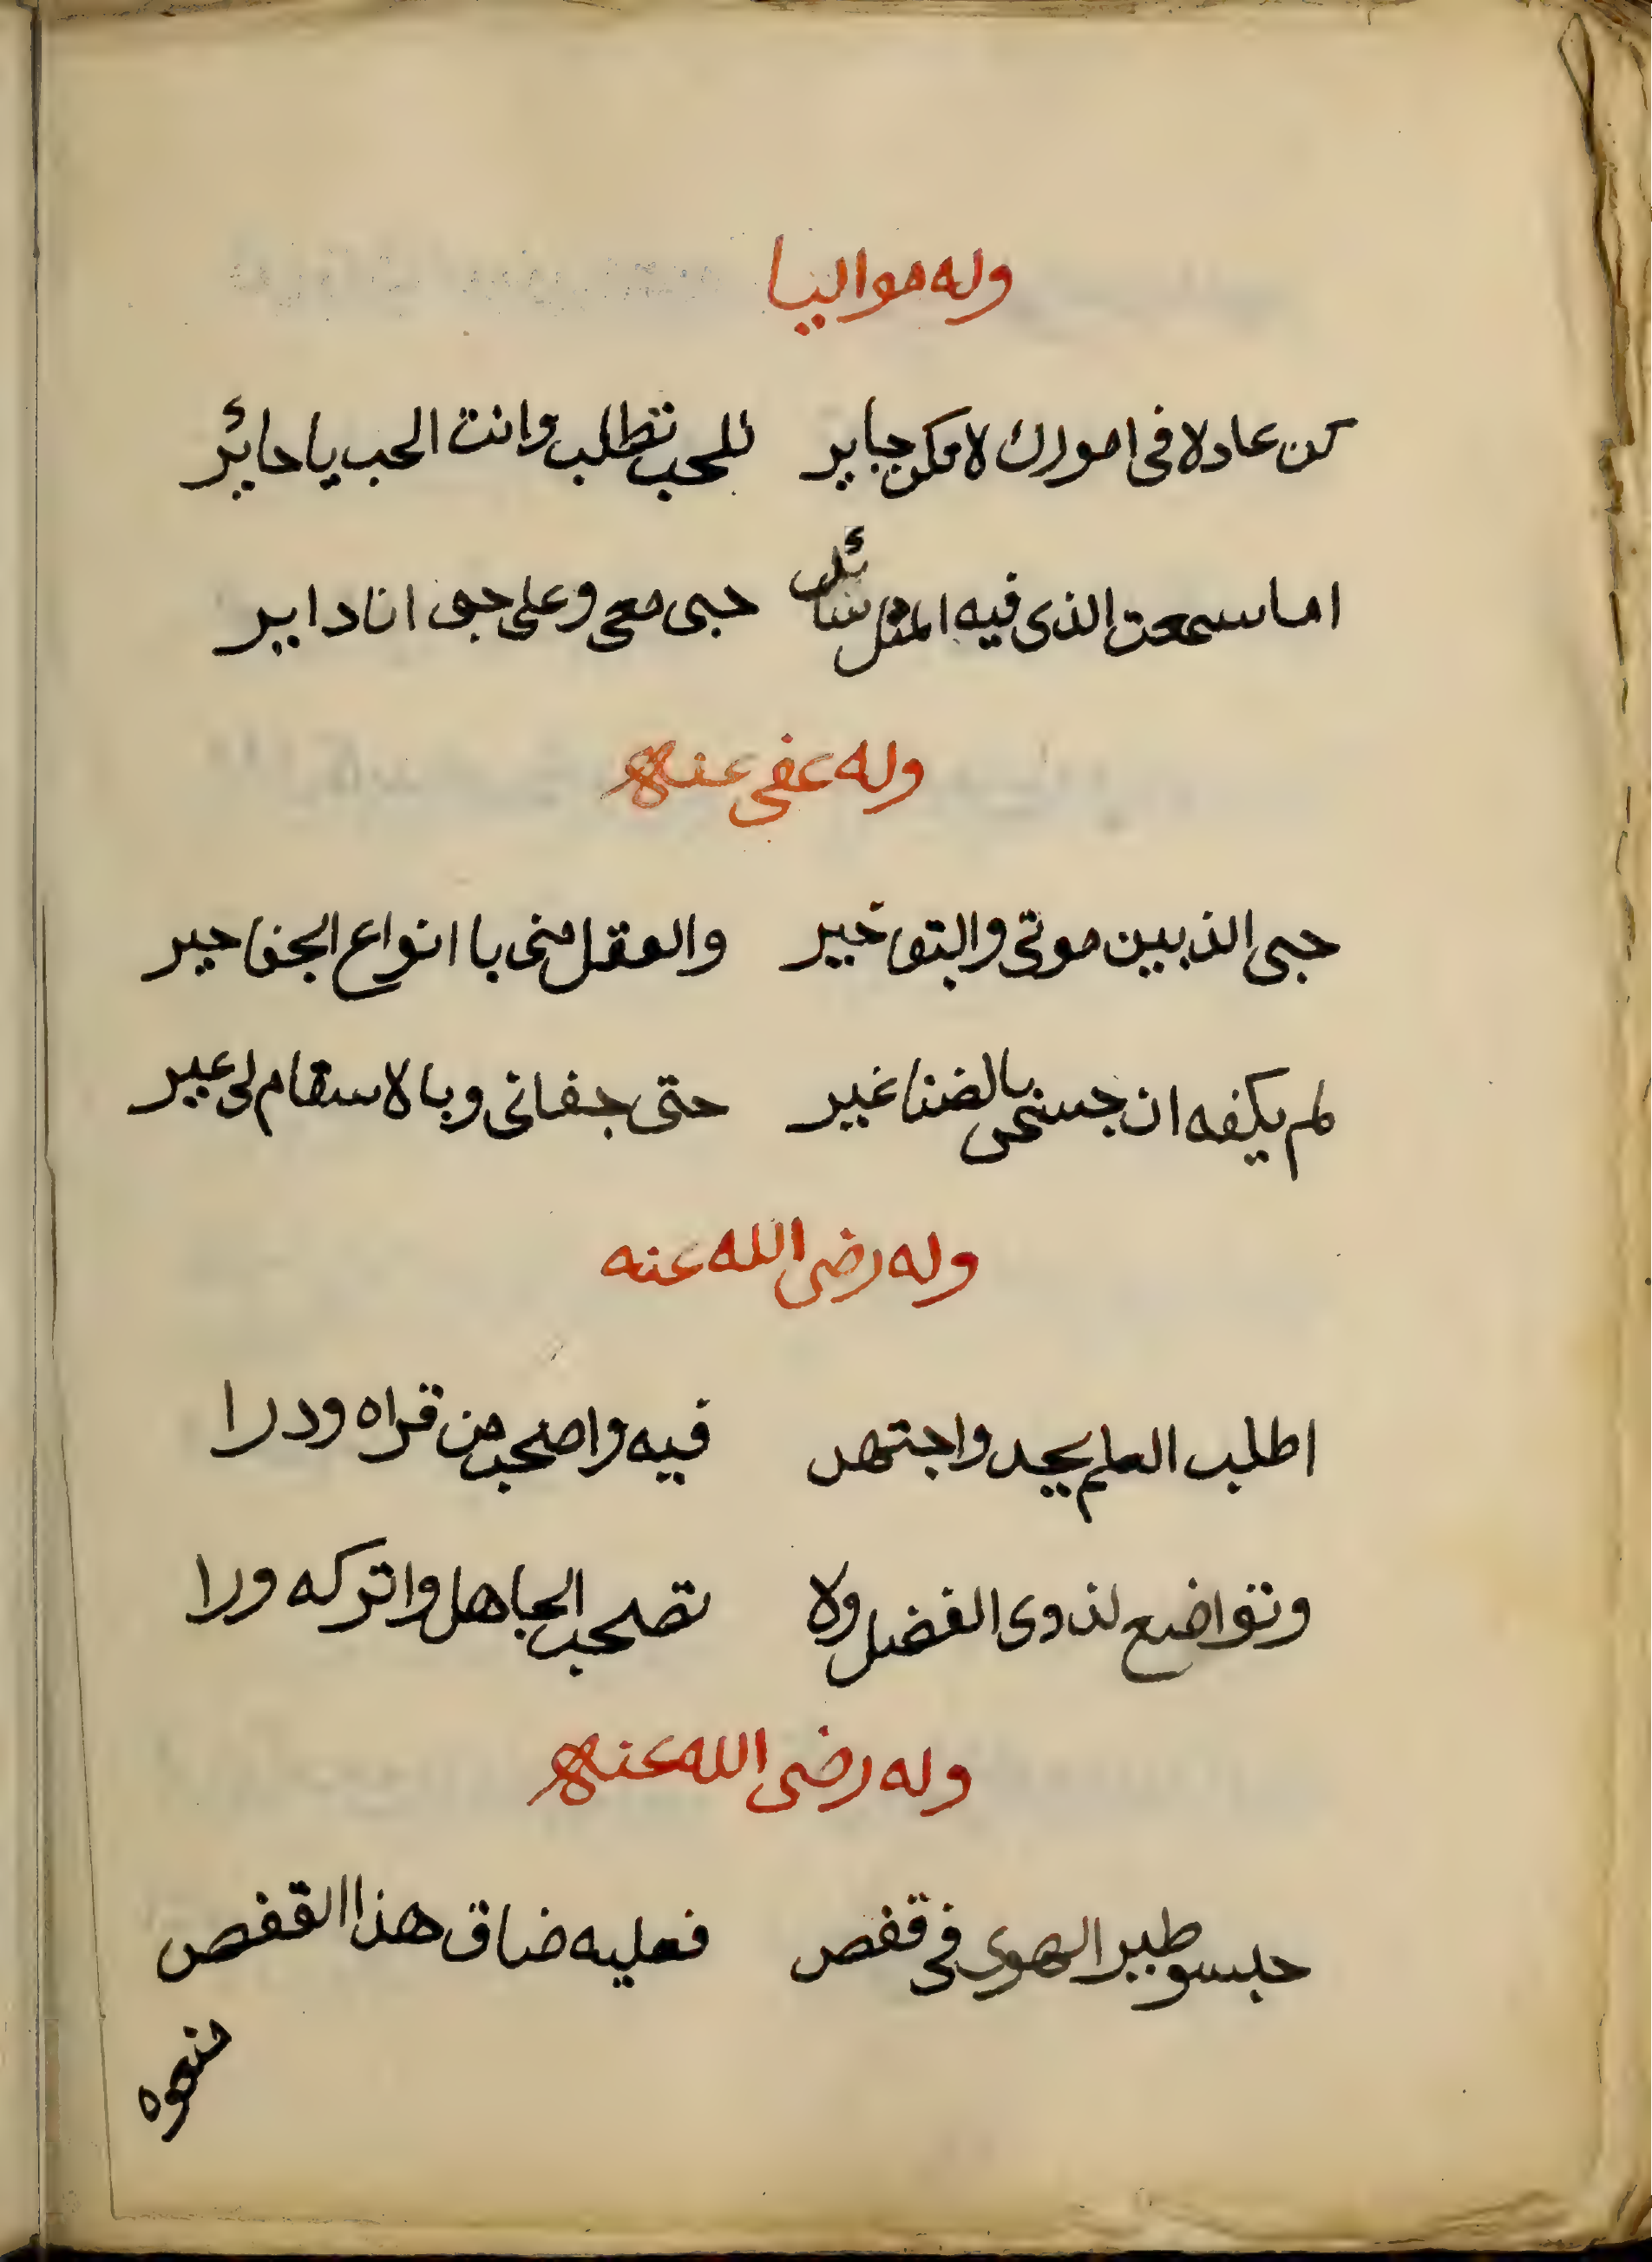 وله مواليا
كن عادلا في امورك لا تكن جاير للحب تطلب وانت الحب يا حائر
اما سمعت الذي فيه المثل سائل حبي معي وعلى حبي انا داير
وله عفى عنه
حبي الذ بين موتي والبقا خير والعقل مني با انواع الجفا حير
لم يكفه ان جسمي بالضنا غير حتى جفاني وبالاسقام لي عير
وله رضى الله عنه
اطلب العلم بجد واجتهد فيه واصحب من قراه ودرا
وتواضع لذوى الفضل ولا تصحب الجاهل واتركه ورا
وله رضى الله عنه
حبسو طير الهوى في قفص فعليه ضاق هذا القفص